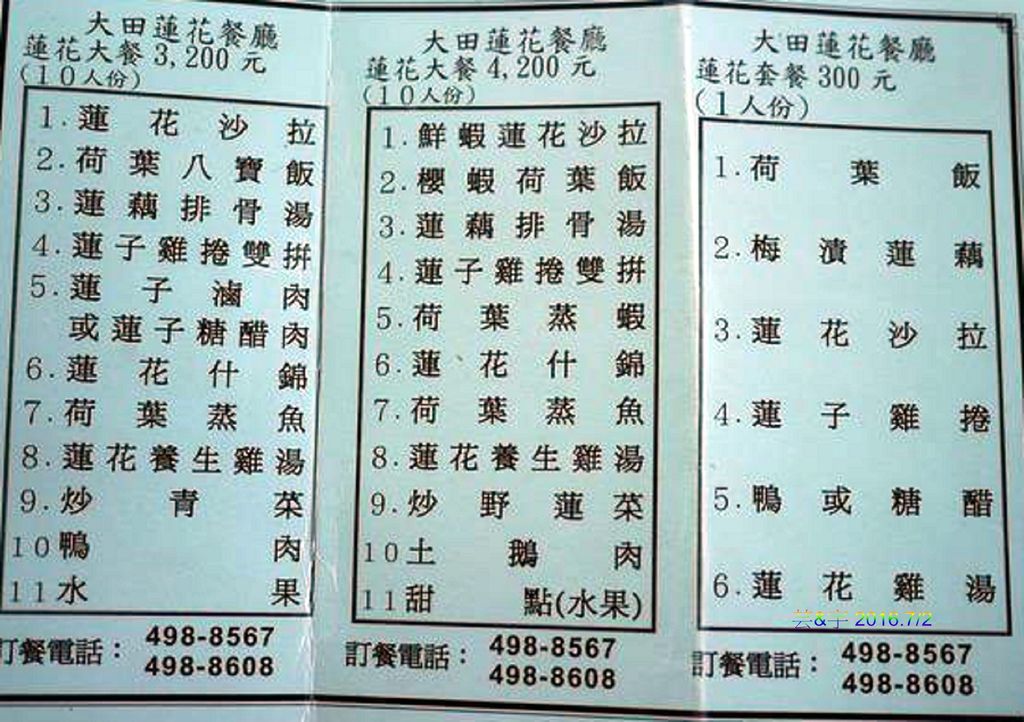 大田蓮花餐廳
蓮花大餐 3,200 元
(10人份)
1.蓮花沙拉
2.荷葉八寶飯
3.蓮藕排骨湯
4.蓮子雞捲雙拚
5.蓮子滷肉
或蓮子糖醋肉
6.蓮花什錦
7.荷葉蒸魚
8.蓮花養生雞湯
9.炒青菜
10鴨肉
11水果
訂餐電話：
498-8567
498-8608
大田蓮花餐廳
蓮花大餐 4,200 元
(10人份)
1.鮮蝦蓮花沙拉
2.櫻蝦荷葉飯
3.蓮藕排骨湯
4.蓮子雞捲雙拚
5.荷葉蒸蝦
6.蓮花什錦
7.荷葉蒸魚
8.蓮花養生雞湯
9.炒野蓮菜
10土鵝肉
11甜點(水果)
訂餐電話：
498-8567
498-8608
大田蓮花餐廳
蓮花套餐 300 元
(1人份)
1.荷葉飯
2.梅漬蓮藕
3.蓮花沙拉
4.蓮子雞捲
5.鴨或糖醋
6.蓮花雞湯
芸&宇 2016.7/2
訂餐電話：
498-8567
498-8608